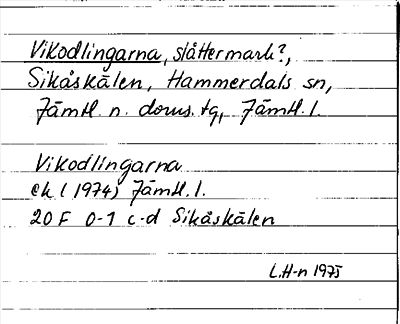 Vikodlingarna, slåttermark?,
Sikåskälen, Hammerdals sn,
Jämtl. n. doms. tg, Jämtl. l.
Vikodlingarna
ek (1974) Jämtl. l.
20 F 0-1 c-d Sikåskälen
L.H-n 1975